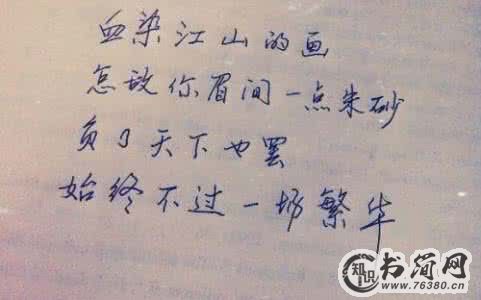 血染江山的画
怎敌你眉间一点朱砂
负了天下也罢
始终不过一场繁华
知识
书简网
www.76380.cn